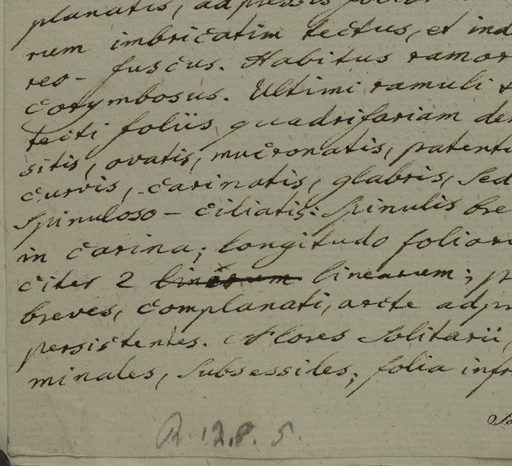 planatis, adpressis
rum imbricatim tectus, et ind
reo- fuscus. Habitus ramor
corymbosus. Ultimi ramuli
tecti foliis quadrifariam den
sitis, ovatis, mucronatis, patentu
curvis, carinatis, glabris, sed
spinuloso- ciliatis: Spinulis bre
in carina; longitudo foliaru
citer 2 linerum linearum; p
breves, complanati, arcte adpr
persistentes. Flores solitarii,
minales, subsessiles; folia infr
R. 12. 8. 5.